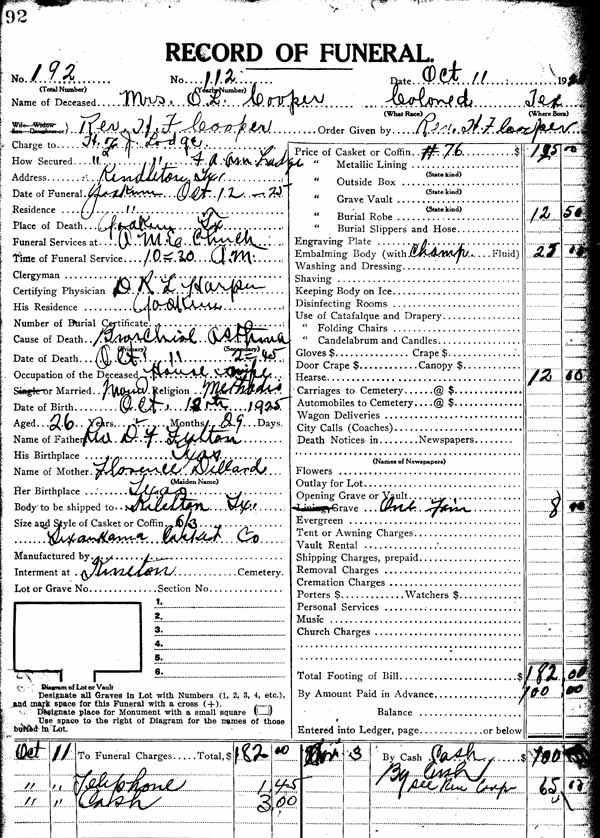 92
RECORD OF FUNERAL.
No. 192 No. 112 Date Oct 11 19
(Total Number) (Yearly Number)
Name of Deceased Mrs. O.L. Cooper Colored Tex
(What Race) (Where Born)
Wife Widow Son Daughter } Rev. H F Cooper Order Given by Rev. H F Cooper
Charge to Lodge
How Secured " " Lodge
Address Kendleton Tx
Date of Funeral Yoakum Oct 12 - 25
Residence " "
Place of Death Yoakum Tx
Funeral Services at A M E Church
Time of Funeral Service 10=30 A.M.
Clergyman
Certifying Physician D R L Harper
His Residence Yoakum
Number of Burial Certificate
Cause of Death Bronchial Asthma
(Primary) (Secondary)
Date of Death Oct 11
Occupation of the Deceased House wife
Single or Married Religion Methodis
Date of Birth Oct 1925
Aged 26 Years Months 29 Days.
Name of Father D. F Fulton
His Birthplace Texas
Name of Mother Florence Dillard
(Maiden Name)
Her Birthplace Texas
Body to be shipped to Tx.
Size and Style of Casket or Coffin 6/3
Casket Co
Manufactured by
Interment at Cemetery.
Lot or Grave No. Section No.
1.
2.
3.
4.
5.
6.
Diagram of Lot or Vault
Designate all Graves in Lot with Numbers (1, 2, 3, 4, etc.),
and mark space for this Funeral with a cross (+).
Designate place for Monument with a small square
Use space to the right of Diagram for the names of those
buried in Lot.
Price of Casket or Coffin #76 $ 00
" Metallic Lining
(State kind)
" Outside Box
(State kind)
" Grave Vault
(State kind)
" Burial Robe 12 50
" Burial Slippers and Hose
Engraving Plate
Embalming Body (with Champ Fluid) 25 00
Washing and Dressing
Shaving
Keeping Body on Ice
Disinfecting Rooms
Use of Catafalque and Drapery
" Folding Chairs
" Candelabrum and Candles
Gloves $ Crape $
Door Crape $ Canopy $
Hearse 12 00
Carriages to Cemetery @ $
Automobiles to Cemetery @ $
Wagon Deliveries
City Calls (Coaches)
Death Notices in Newspapers
(Names of Newspapers)
Flowers
Outlay for Lot
Opening Grave or Vault
Lining Grave 8 00
Evergreen
Tent or Awning Charges
Vault Rental
Shipping Charges, prepaid
Removal Charges
Cremation Charges
Porters $ Watchers $
Personal Services
Music
Church Charges
Total Footing of Bill $ 182 00
By Amount Paid in Advance 100 00
Balance
Entered into Ledger, page or below
Oct 11 To Funeral Charges Total, $ 182 00 3 By Cash Cash $ 100
" " Telephone 1.45 By Cash 65 00
" " Cash 3.00 see Rev Coop